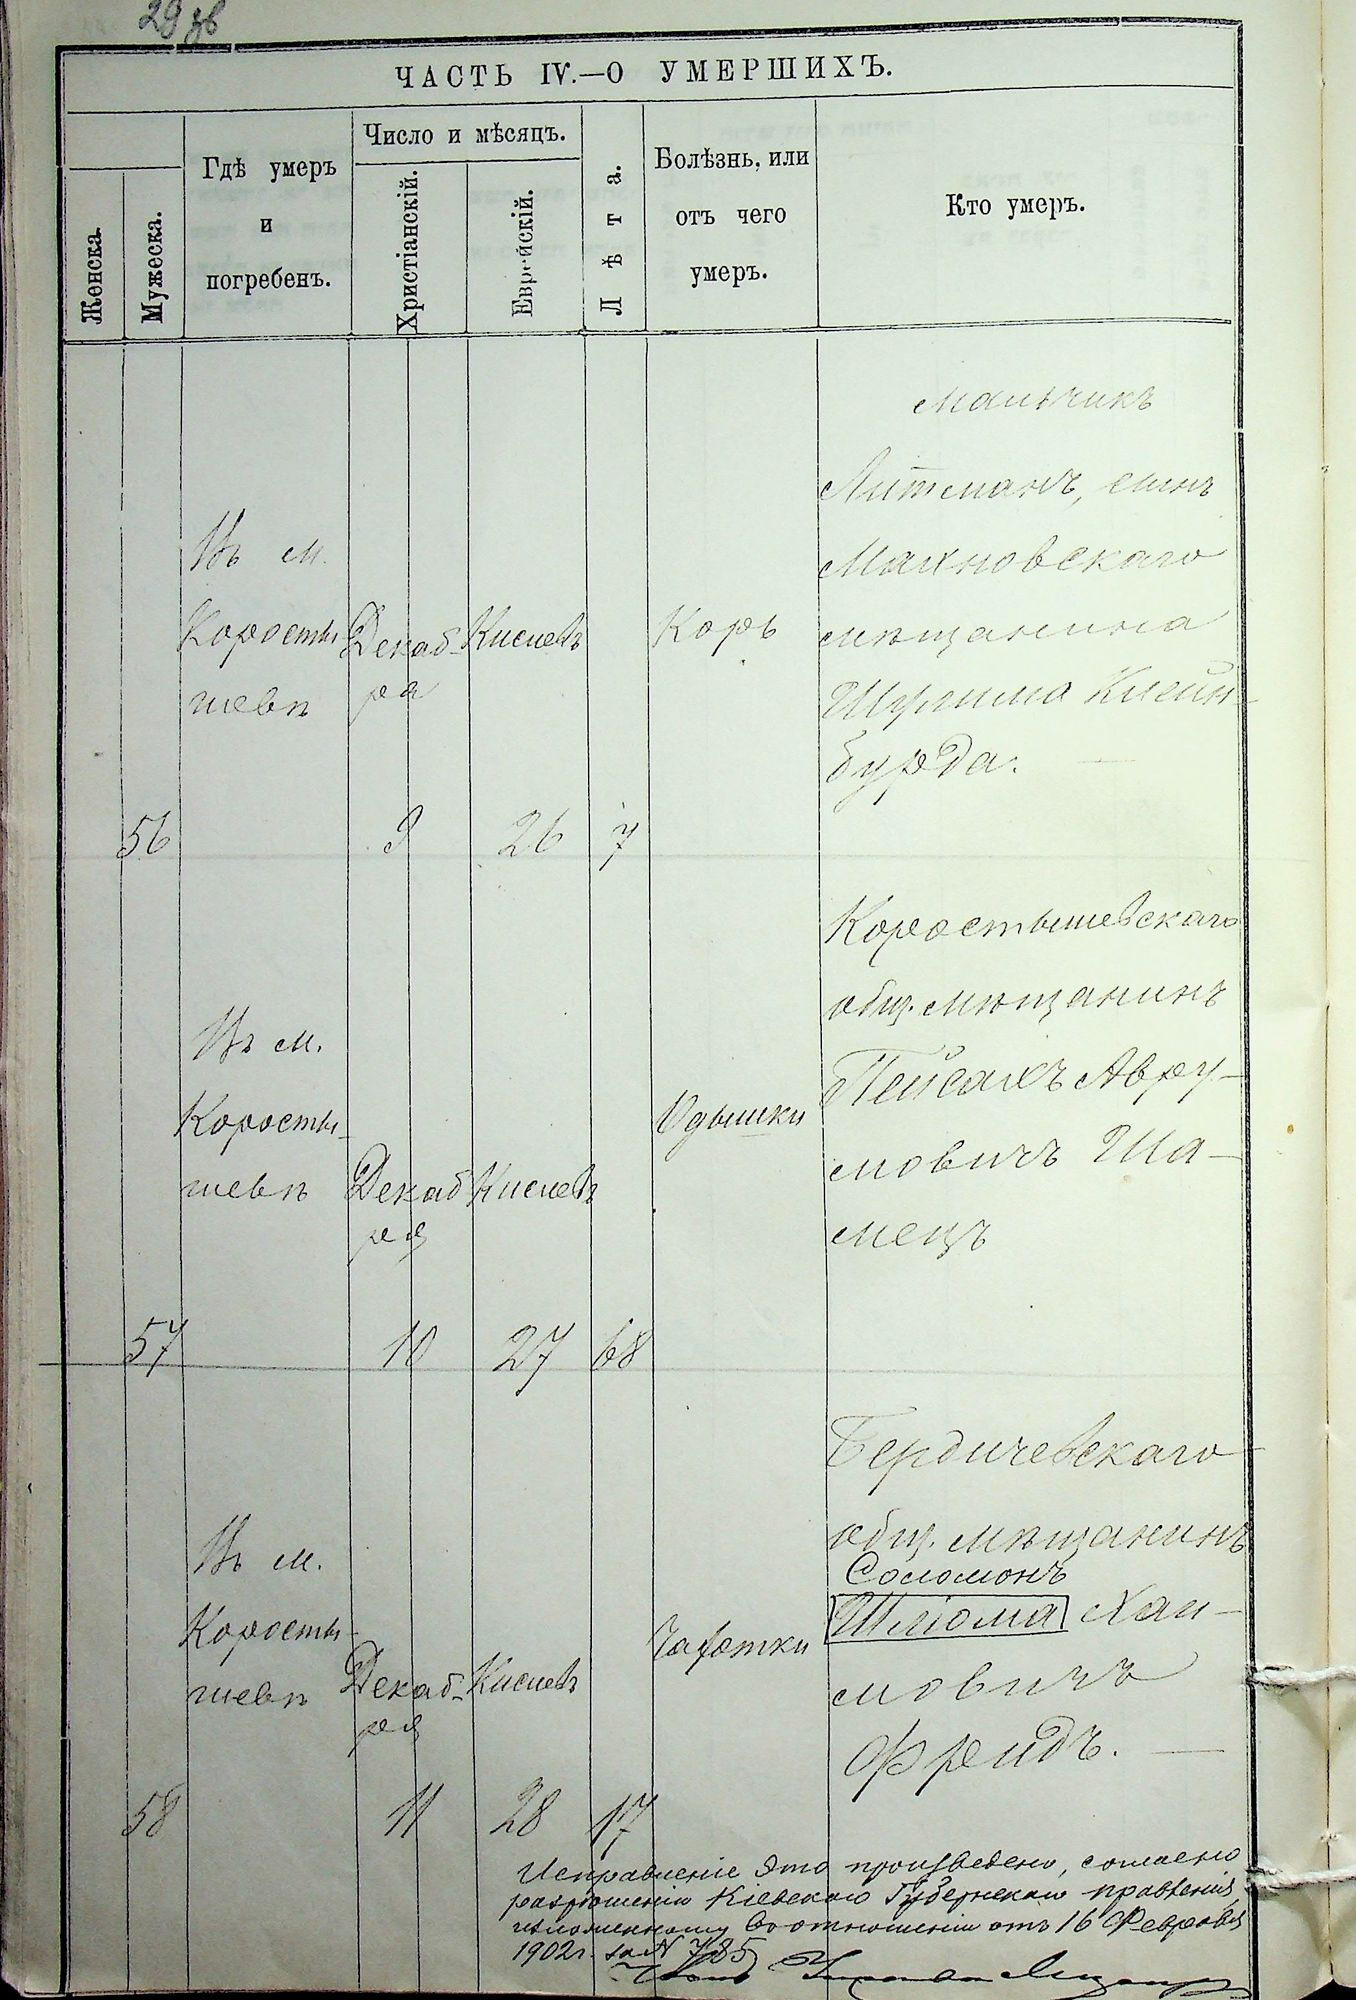 29 зв
ЧАСТЬ IV.—О УМЕРШИХЪ.
Женска.
Мужеска.
Гдѣ умеръ
и
погребенъ.
Число и мѣсяцъ.
Христіанскій.
Еврейскій.
Лѣта.
Болѣзнь, или
отъ чего
умеръ.
Кто умеръ.
56
Въ м.
Коросты
шевѣ
Декаб-
ря
9
Кислевъ
26
7
Корь
мальчикъ
Литманъ, сынъ
Махновскаго
мѣщанина
Шулима Клейн-
бурда.
57
Въ м.
Коросты-
шевѣ
Декаб
ря
10
Кислевъ
27
68
Одышки
Коростышевскаго
общ. мѣщанинъ
Пейсахъ Авру-
мовичъ Ша-
мецъ
58
Въ м.
Коросты-
шевѣ
Декаб-
ря
11
Кислевъ
28
17
Чахотки
Бердичевскаго
общ. мѣщанинъ
Соломонъ
Шлiома Хаи-
мовичъ
Фреидъ.
Исправленіе это произведено, согласно
разрѣшенія Кіевскаго Губернскаго правленія,
изложенному въ отношеніи отъ 16 Февраля
1902 г. за N 785